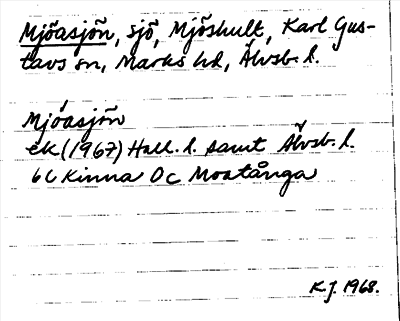 Mjöasjön, sjö, Mjöshult, Karl Gus-
tavs sn, Marks hd, Älvsb. l.
Mjöasjön
ek (1967) Hall. l. samt Älvsb. l.
6C Kinna Oc Moatånga
K.J. 1968.